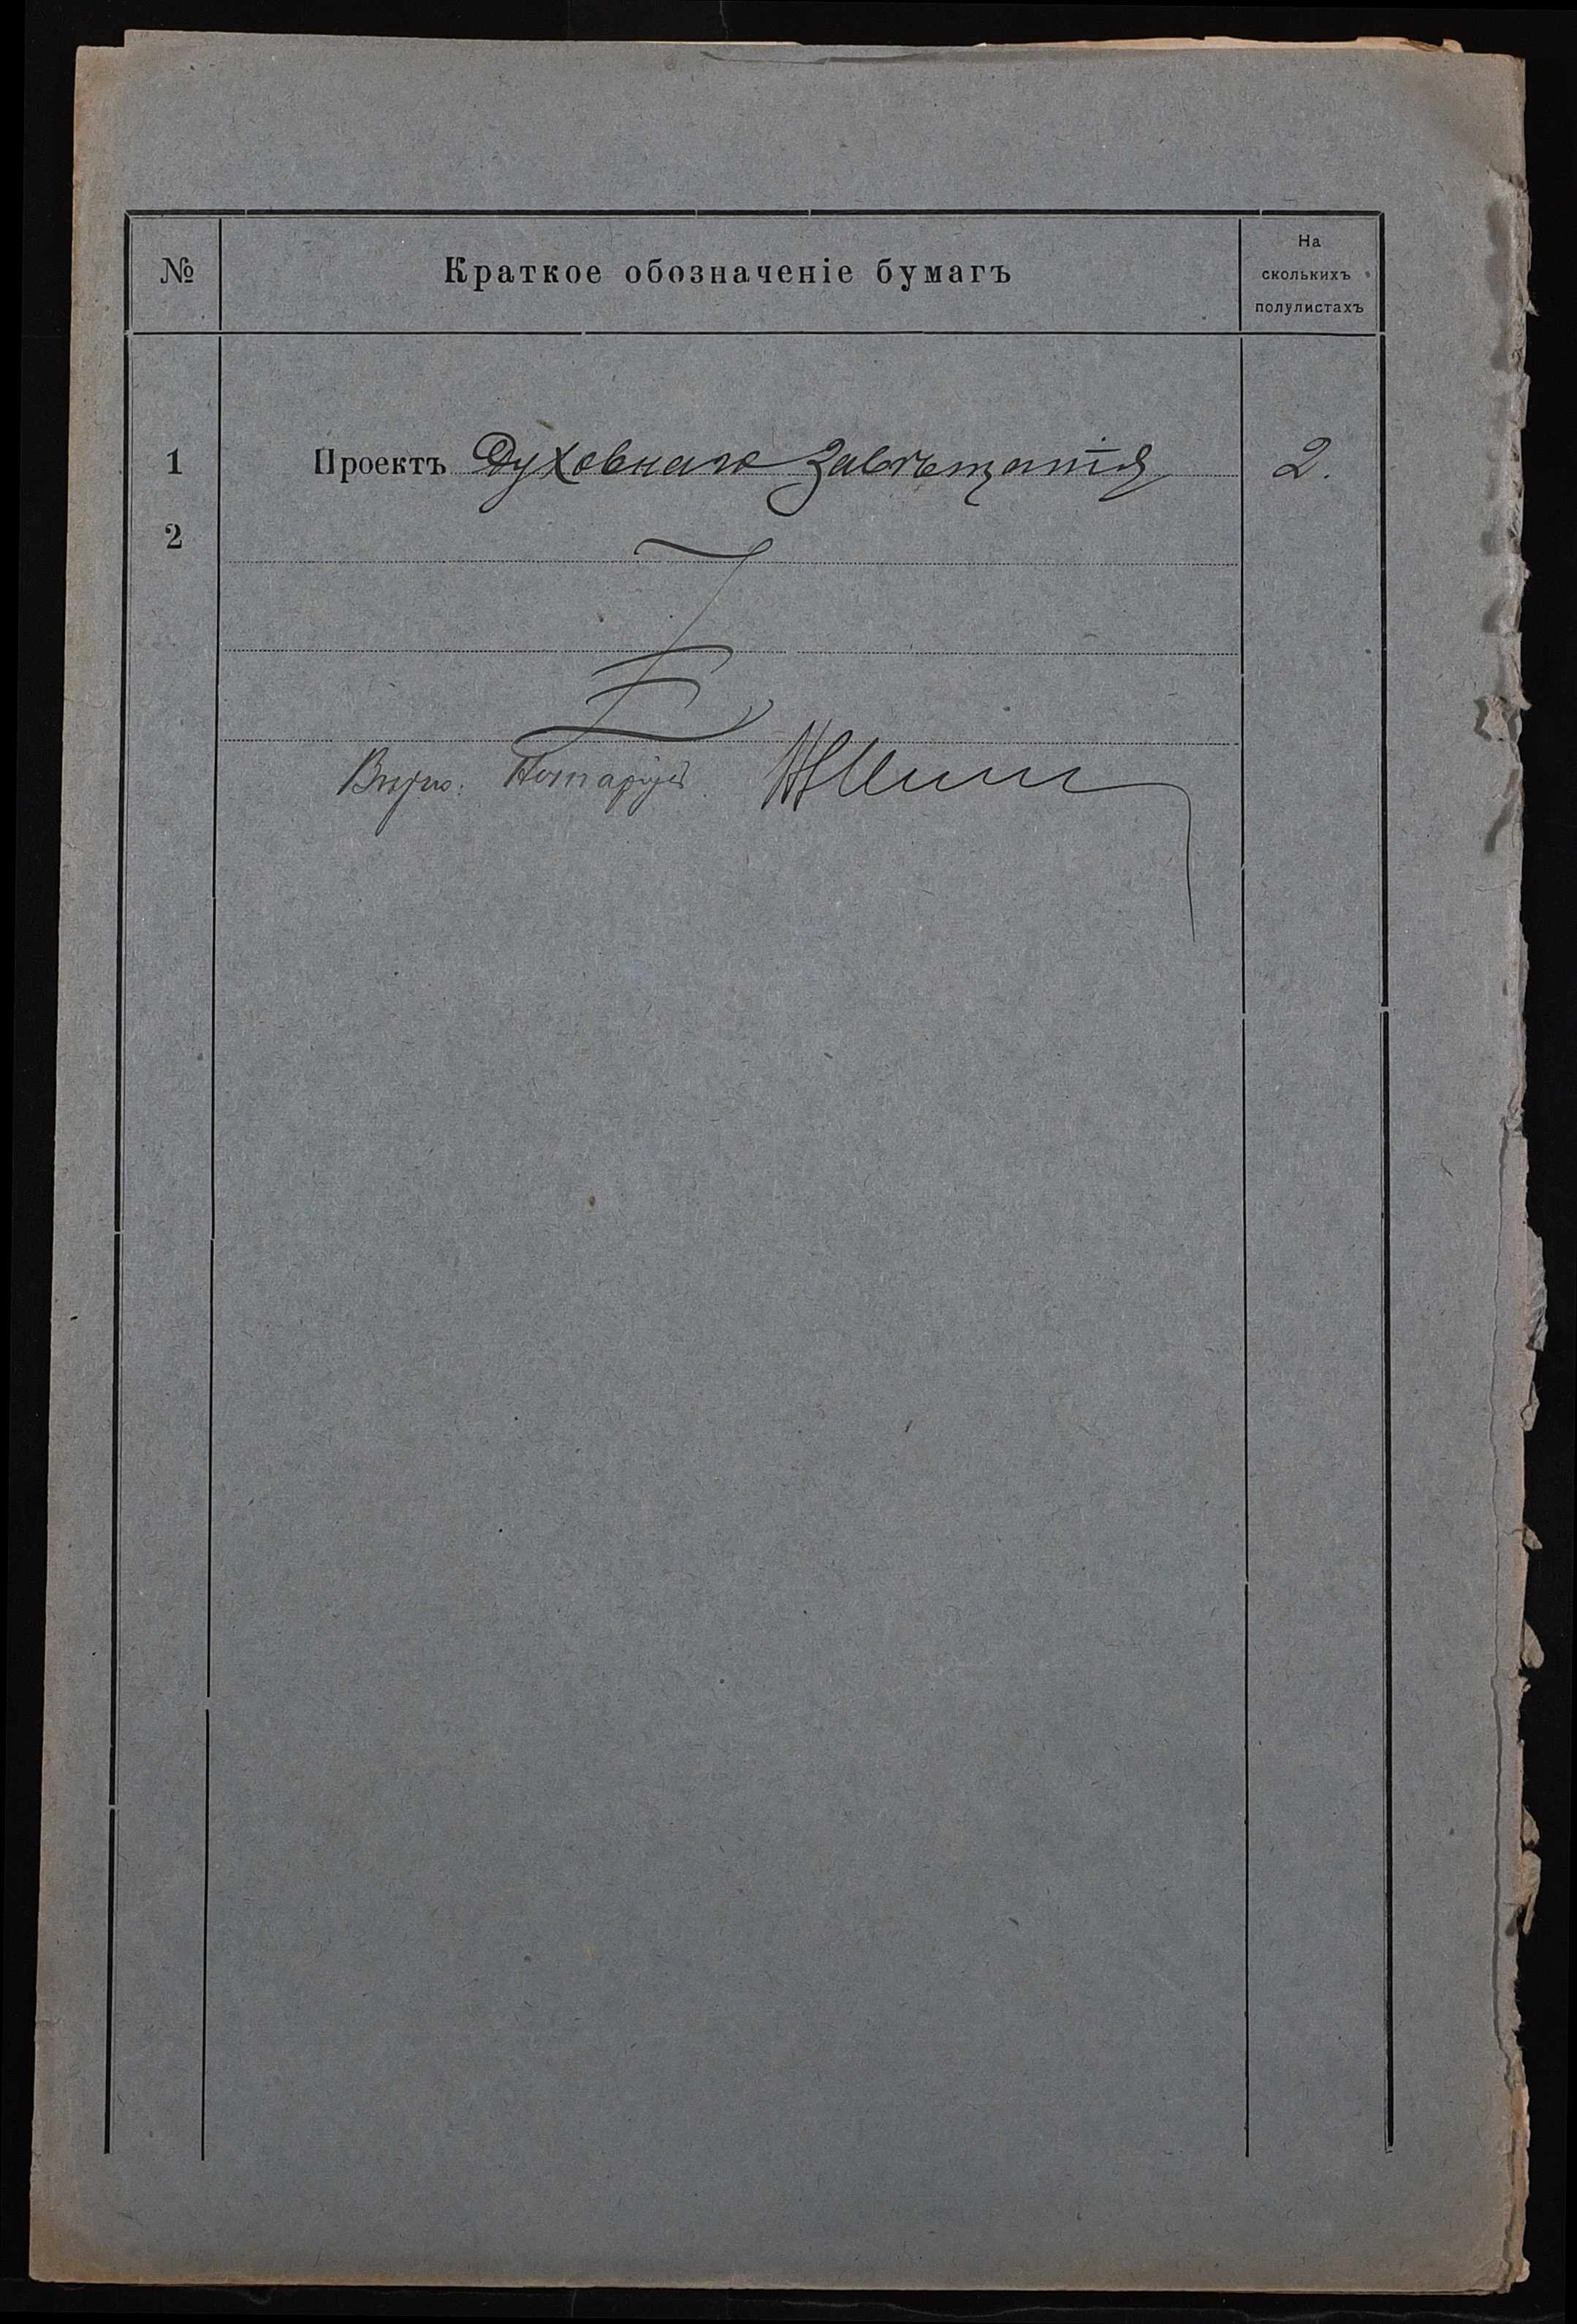 №
Краткое обозначеніе бумагъ
На
сколькихъ
полулистахъ
1 Проектъ Духовнаго Завѣщанія 2.
2
Вѣрно: Нотаріусъ